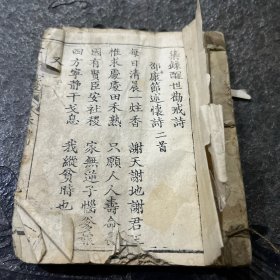 集錄醒世勸戒詩
邵康節遺懷詩二首
每日清晨一炷香 謝天謝地謝君
惟求處處田禾熟 只願人人壽命
國有賢臣安社稷 家無逆子惱爹
四方寧靜干戈息 我縱貧時也
又